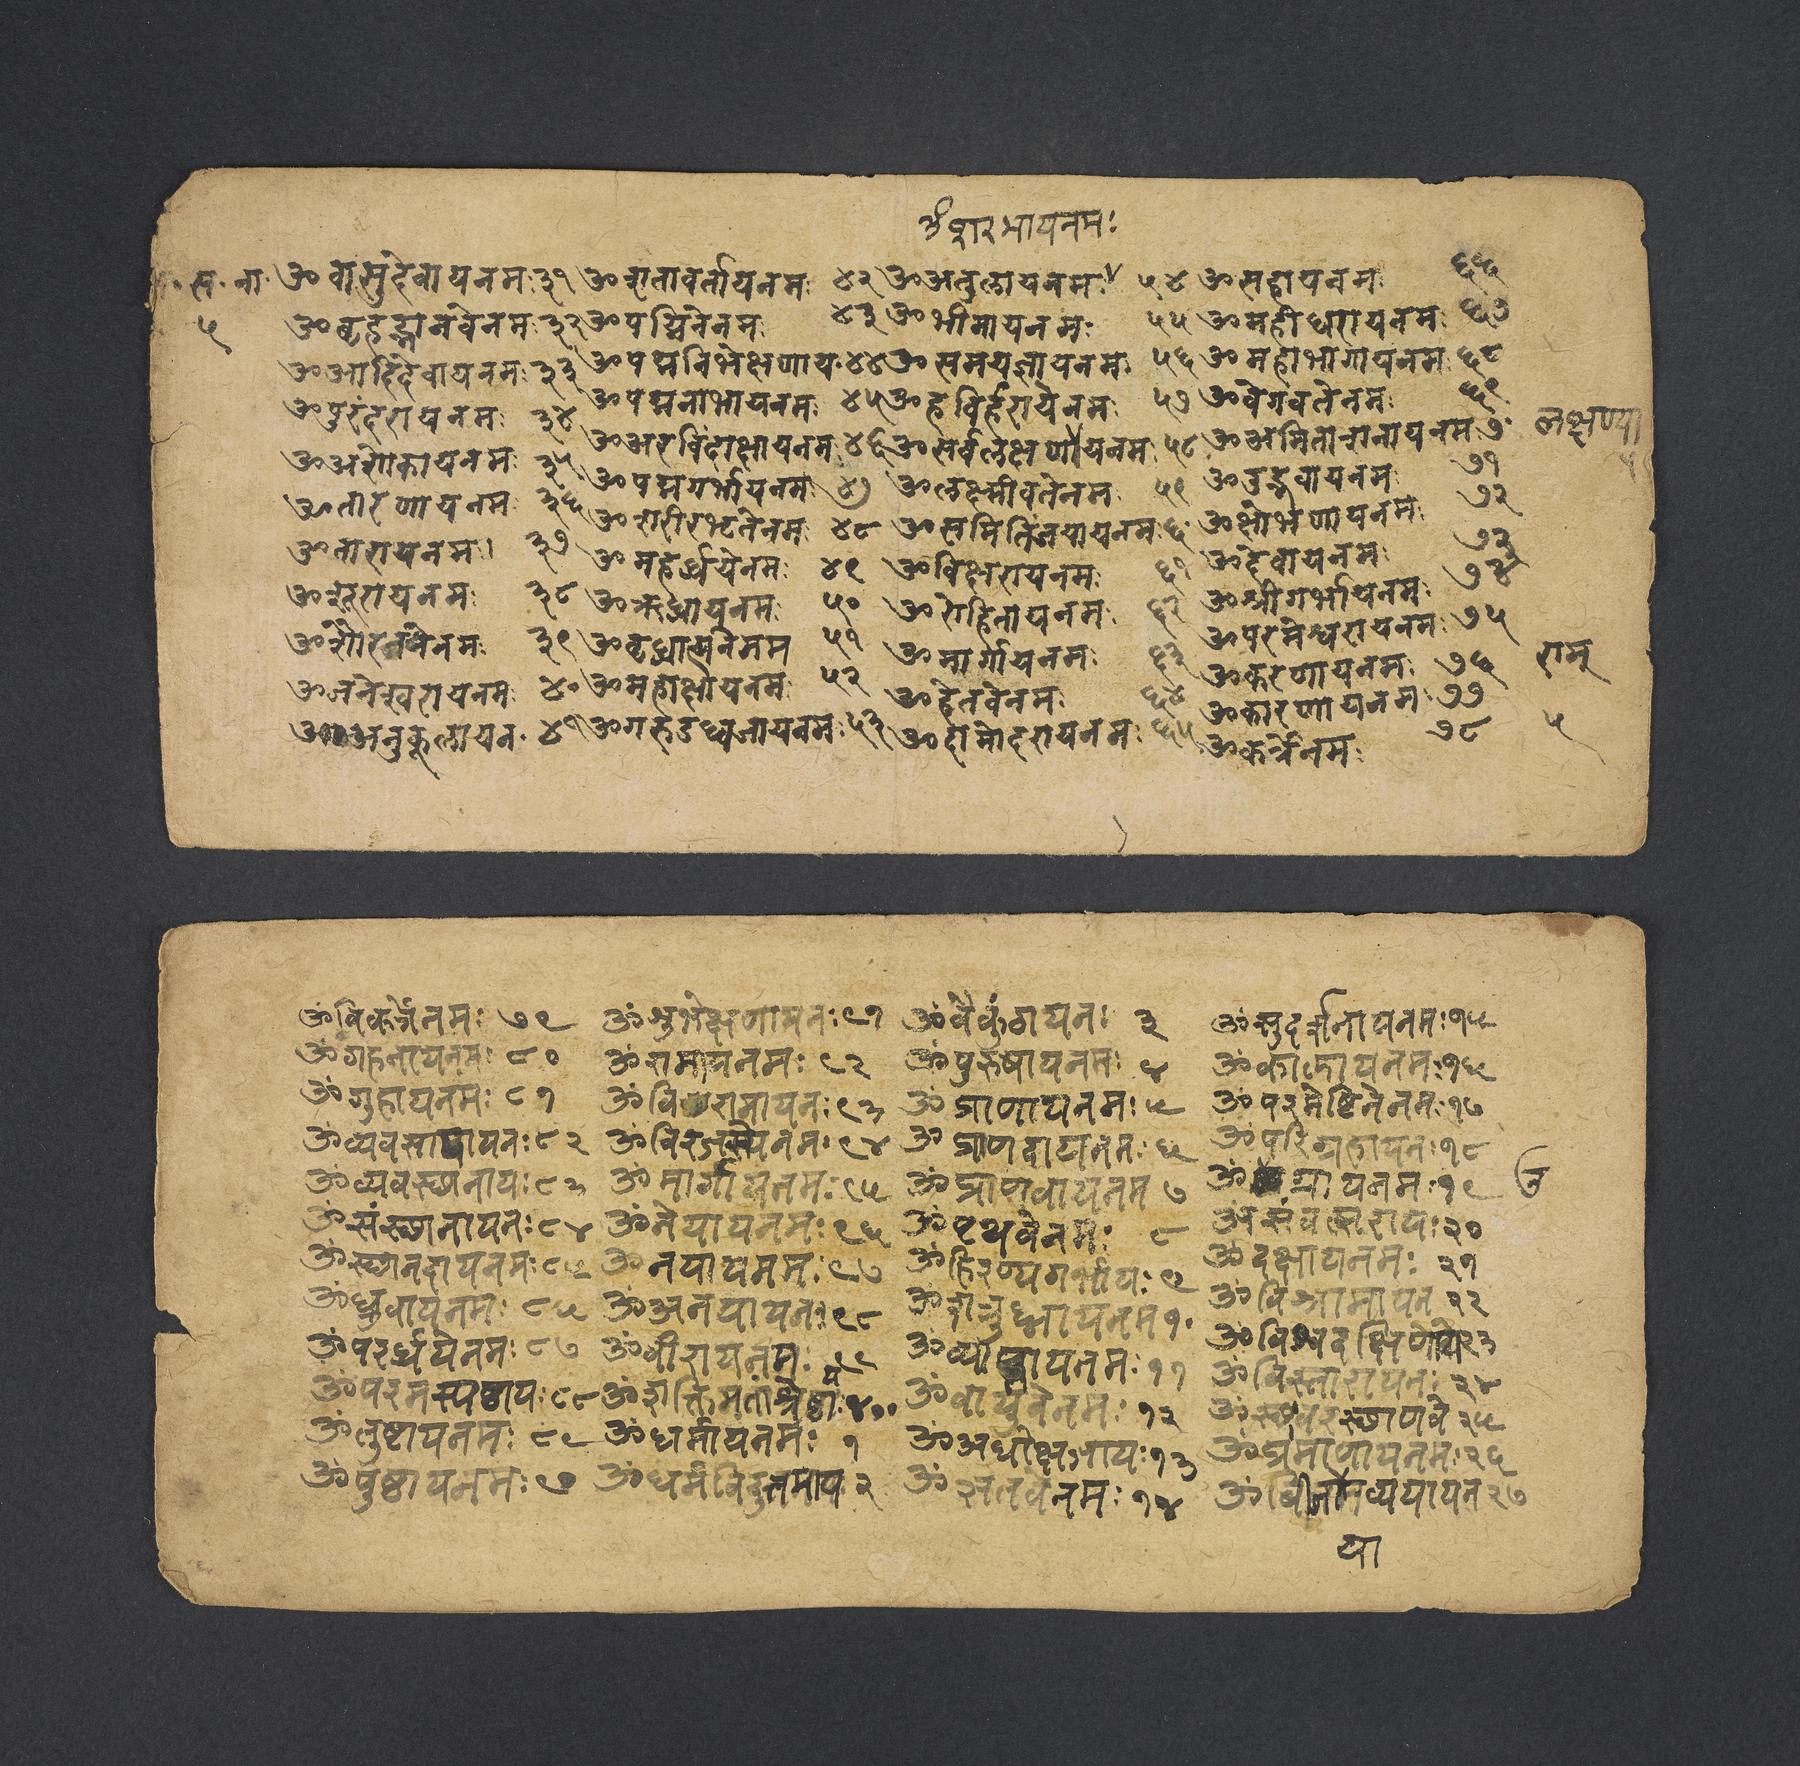 ॐ शरभायनमः
स॰ ना॰
५
ॐ वासुदेवायनमः ३१
ॐ बृहद्भानवेनमः ३२
ॐ आदिदेवायनमः ३३
ॐ पुरंदरायनमः ३४
ॐ अशोकायनमः ३५
ॐ तारणायनमः ३६
ॐ तारायनमः। ३७
ॐ शूरायनमः ३८
ॐ शौरयेनमः ३९
ॐ जनेश्वरायनमः ४०
ॐ अनुकूलायन॰ ४१
ॐ शतावर्तायनमः ४२
ॐ पद्मिनेनमः ४३
ॐ पद्मनिभेक्षणाय॰ ४४
ॐ पद्मनाभायनमः ४५
ॐ अरविंदाक्षायनमः ४६
ॐ पद्मगर्भायनमः ४७
ॐ शरीरभृतेनमः ४८
ॐ महर्ध्दयेनमः ४९
ॐ ऋध्दायनमः ५०
ॐ वृध्दात्मनेनमः ५१
ॐ महाक्षायनमः ५२
ॐ गरुडध्वजायनमः ५३
ॐ अतुलायनमः ५४
ॐ भीमायनमः ५५
ॐ समयज्ञायनमः ५६
ॐ हविर्हरायनमः ५७
ॐ सर्वलक्षणायनमः ५८
ॐ लक्ष्मीवतेनमः ५९
ॐ समितिंजयायनमः ६॰
ॐ विक्षरायनमः ६१
ॐ रोहितायनमः ६२
ॐ मार्गायनमः ६३
ॐ हेतवेनमः ६४
ॐ दामोदरायनमः ६५
ॐ सहायनमः ६६
ॐ महीधरायनमः ६७
ॐ महाभागायनमः ६८
ॐ वेगवतेनमः ६९
ॐ अमिताशनायनमः ७॰
ॐ उद्भवायनमः ७१
ॐ क्षोभणायनमः ७२
ॐ देवायनमः ७३
ॐ श्रीगर्भायनमः ७४
ॐ परमेश्वरायनमः ७५
ॐ करणायनमः ७६
ॐ कारणायनमः ७७
ॐ कर्त्रेनमः ७८
लक्षण्या
५
रामू
५
ॐ विकर्त्रेनमः ७९
ॐ गहनायनमः ८०
ॐ गुहायनमः ८१
ॐ व्यवसायायनः ८२
ॐ व्यवस्थानायः ८३
ॐ संस्थानायनः ८४
ॐ स्थानदायनमः ८५
ॐ ध्रुवायनमः ८६
ॐ परर्ध्दयेनमः ८७
ॐ परमस्पष्ठायः ८८
ॐ तुष्टायनमः ८९
ॐ पुष्ठायनमः ९०
ॐ शुभेक्षणायनः ९१
ॐ रामायनमः ९२
ॐ विरामायनः ९३
ॐ विरजसेनमः ९४
ॐ मार्गायनमः ९५
ॐ नेयायनमः ९६
ॐ नयायनमः ९७
ॐ अनयायनः ९८
ॐ वीरायनमः ९९
ॐ शक्तिमतांश्रेष्ठायः ४००
ॐ धर्मायनमः १
ॐ धर्मविदुत्तमाय २
ॐ वैकुंठायनः ३
ॐ पुरुषायनमः ४
ॐ प्राणायनमः ५
ॐ प्राणदायनमः ६
ॐ प्राणवायनमः ७
ॐ पृथवेनमः ८
ॐ हिरण्यगर्भायः ९
ॐ शत्रुघ्नायनमः १॰
ॐ व्याप्तायनमः ११
ॐ वायवेनमः १२
ॐ अधोक्षजायः १३
ॐ ऋतवेनमः १४
ॐ सुदर्शनायनमः १५
ॐ कालायनमः १६
ॐ परमेष्टिनेनमः १७
ॐ परिग्रहायनः १८
ॐ उग्रायनमः १९
उ
ॐ संवत्सरायः २०
ॐ दक्षायनमः २१
ॐ विश्रामायन २२
ॐ विश्वदक्षिणाय २३
ॐ विस्तारायनः २४
ॐ स्थावरस्थाणवे २५
ॐ प्रमाणायनमः २६
ॐ बीजाव्ययायन २७
या